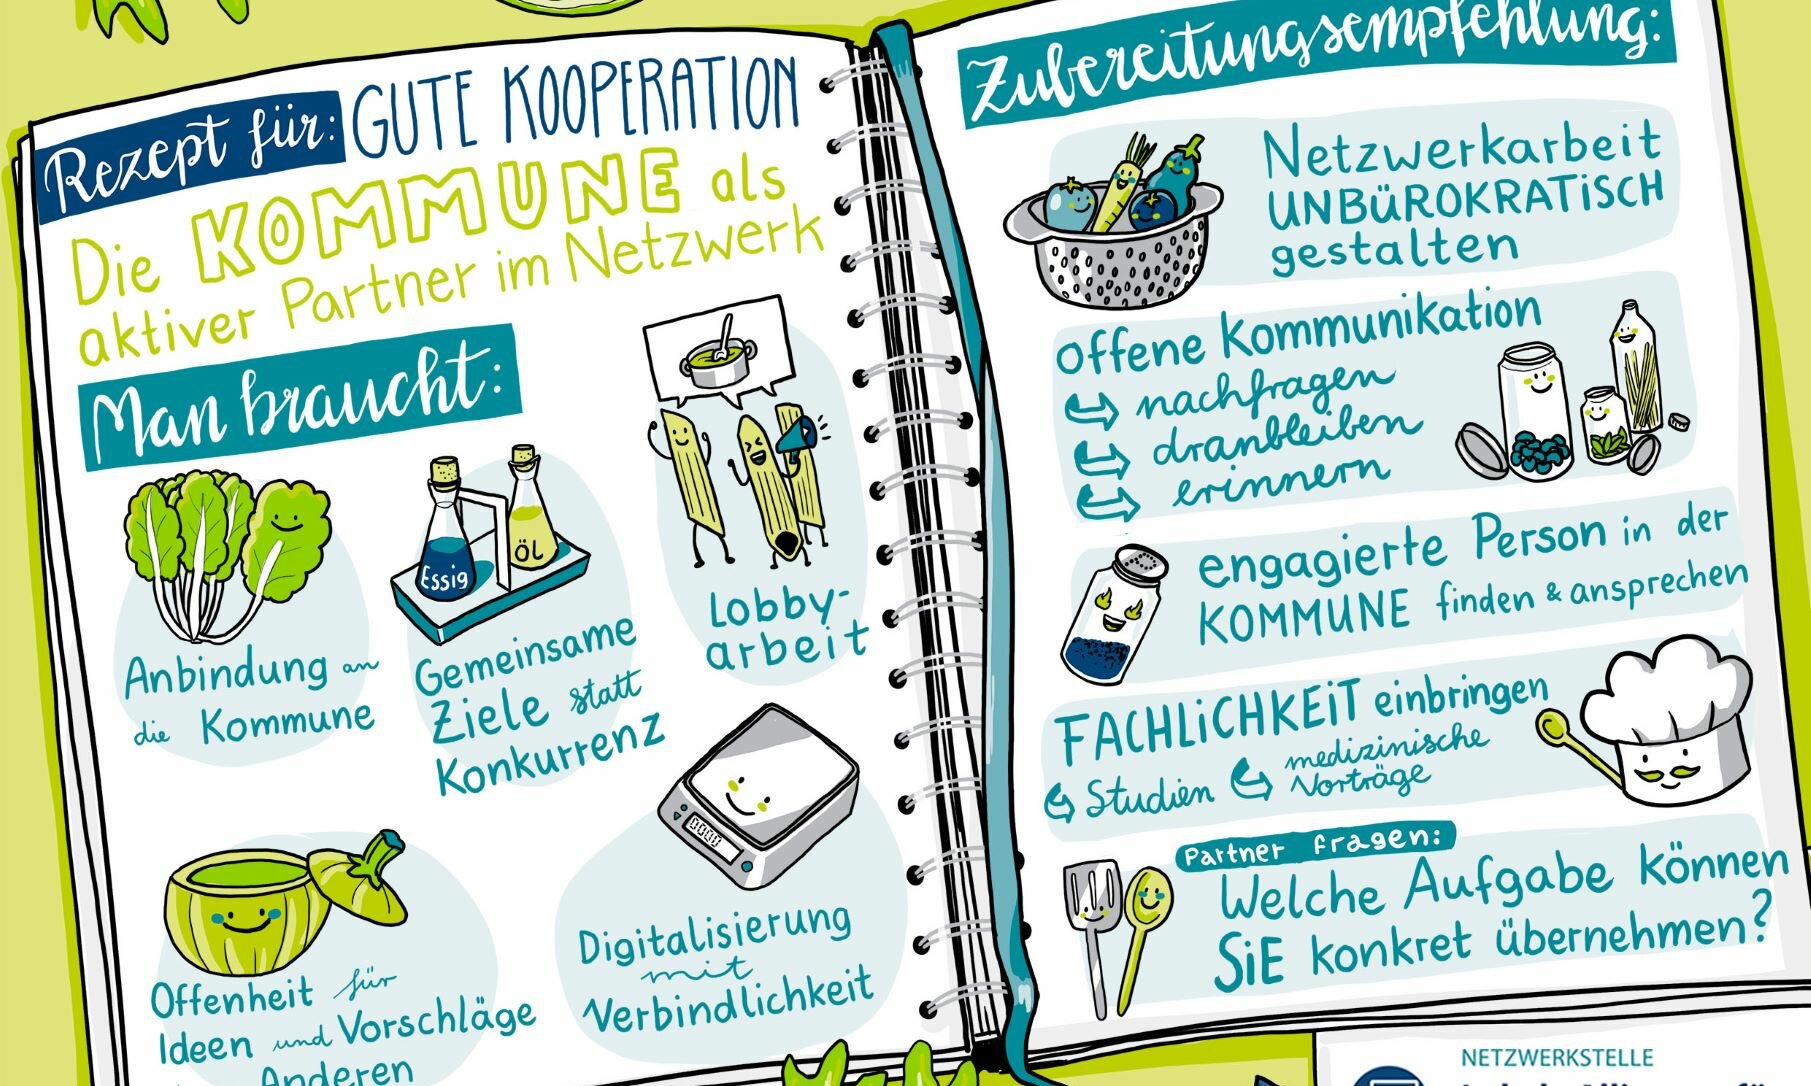 Rezept für: GUTE KOOPERATION
Die KOMMUNE als
aktiver Partner im Netzwerk
Man braucht:
Essig
Öl
Anbindung an
die Kommune
Gemeinsame
Ziele statt
Konkurrenz
Lobby-
arbeit
0000
Offenheit für
Ideen und Vorschläge
Anderen
Digitalisierung
mit
Verbindlichkeit
Zubereitungsempfehlung:
Netzwerkarbeit
UNBÜROKRATISCH
gestalten
offene Kommunikation
nachfragen
dranbleiben
erinnern
engagierte Person in der
KOMMUNE finden & ansprechen
FACHLICHKEIT einbringen
Studien
medizinische
Vorträge
Partner fragen:
Welche Aufgabe können
SIE konkret übernehmen?
NETZWERKSTELLE